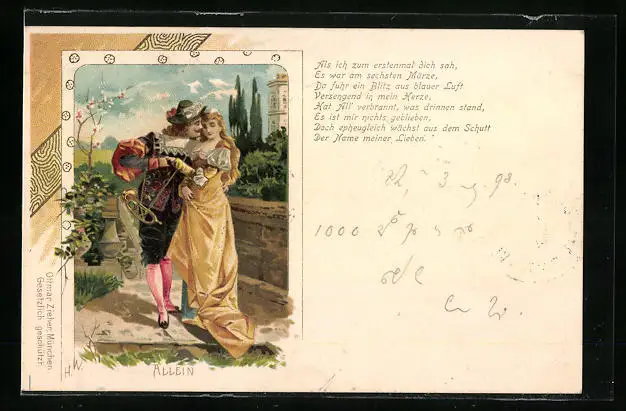 Als ich zum erstenmal dich sah,
Es war am sechsten Märze,
Da fuhr ein Blitz aus blauer Luft
Versengend in mein Herze.
Hat All' verbrannt, was drinnen stand,
Es ist mir nichts geblieben,
Doch epheugleich wächst aus dem Schutt
Der Name meiner Lieben.
3 98.
1000
Ottmar Zieher, München
Gesetzlich geschützt.
H.W.
ALLEIN